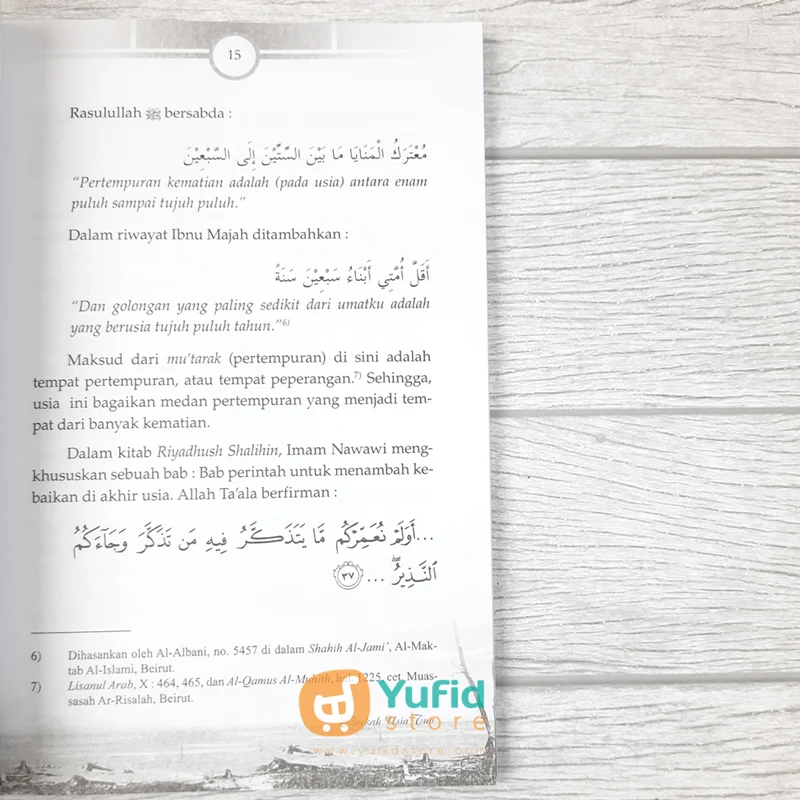 15
Rasulullah ﷺ bersabda :
مُعْتَرَكُ الْمَنَايَا مَا بَيْنَ السِّتِّيْنَ إِلَى السَّبْعِيْنَ
“Pertempuran kematian adalah (pada usia) antara enam
puluh sampai tujuh puluh.”
Dalam riwayat Ibnu Majah ditambahkan :
أَقَلَّ أُمَّتِي أَبْنَاءُ سَبْعِيْنَ سَنَةً
“Dan golongan yang paling sedikit dari umatku adalah
yang berusia tujuh puluh tahun.”6)
Maksud dari mu’tarak (pertempuran) di sini adalah
tempat pertempuran, atau tempat peperangan.7) Sehingga,
usia ini bagaikan medan pertempuran yang menjadi tem-
pat dari banyak kematian.
Dalam kitab Riyadhush Shalihin, Imam Nawawi meng-
khususkan sebuah bab : Bab perintah untuk menambah ke-
baikan di akhir usia. Allah Ta’ala berfirman :
...أَوَلَمْ نُعَمِّرْكُم مَّا يَتَذَكَّرُ فِيهِ مَن تَذَكَّرَ وَجَآءَكُمُ
ٱلنَّذِيرُ ۖ ... ٣٧
6) Dihasankan oleh Al-Albani, no. 5457 di dalam Shahih Al-Jami’, Al-Mak-
tab Al-Islami, Beirut.
7) Lisanul Arab, X : 464, 465, dan Al-Qamus Al-Muhith, hal 1225, cet. Muas-
sasah Ar-Risalah, Beirut.
Yufid
store
Usia Tua
www.yufidstore.com